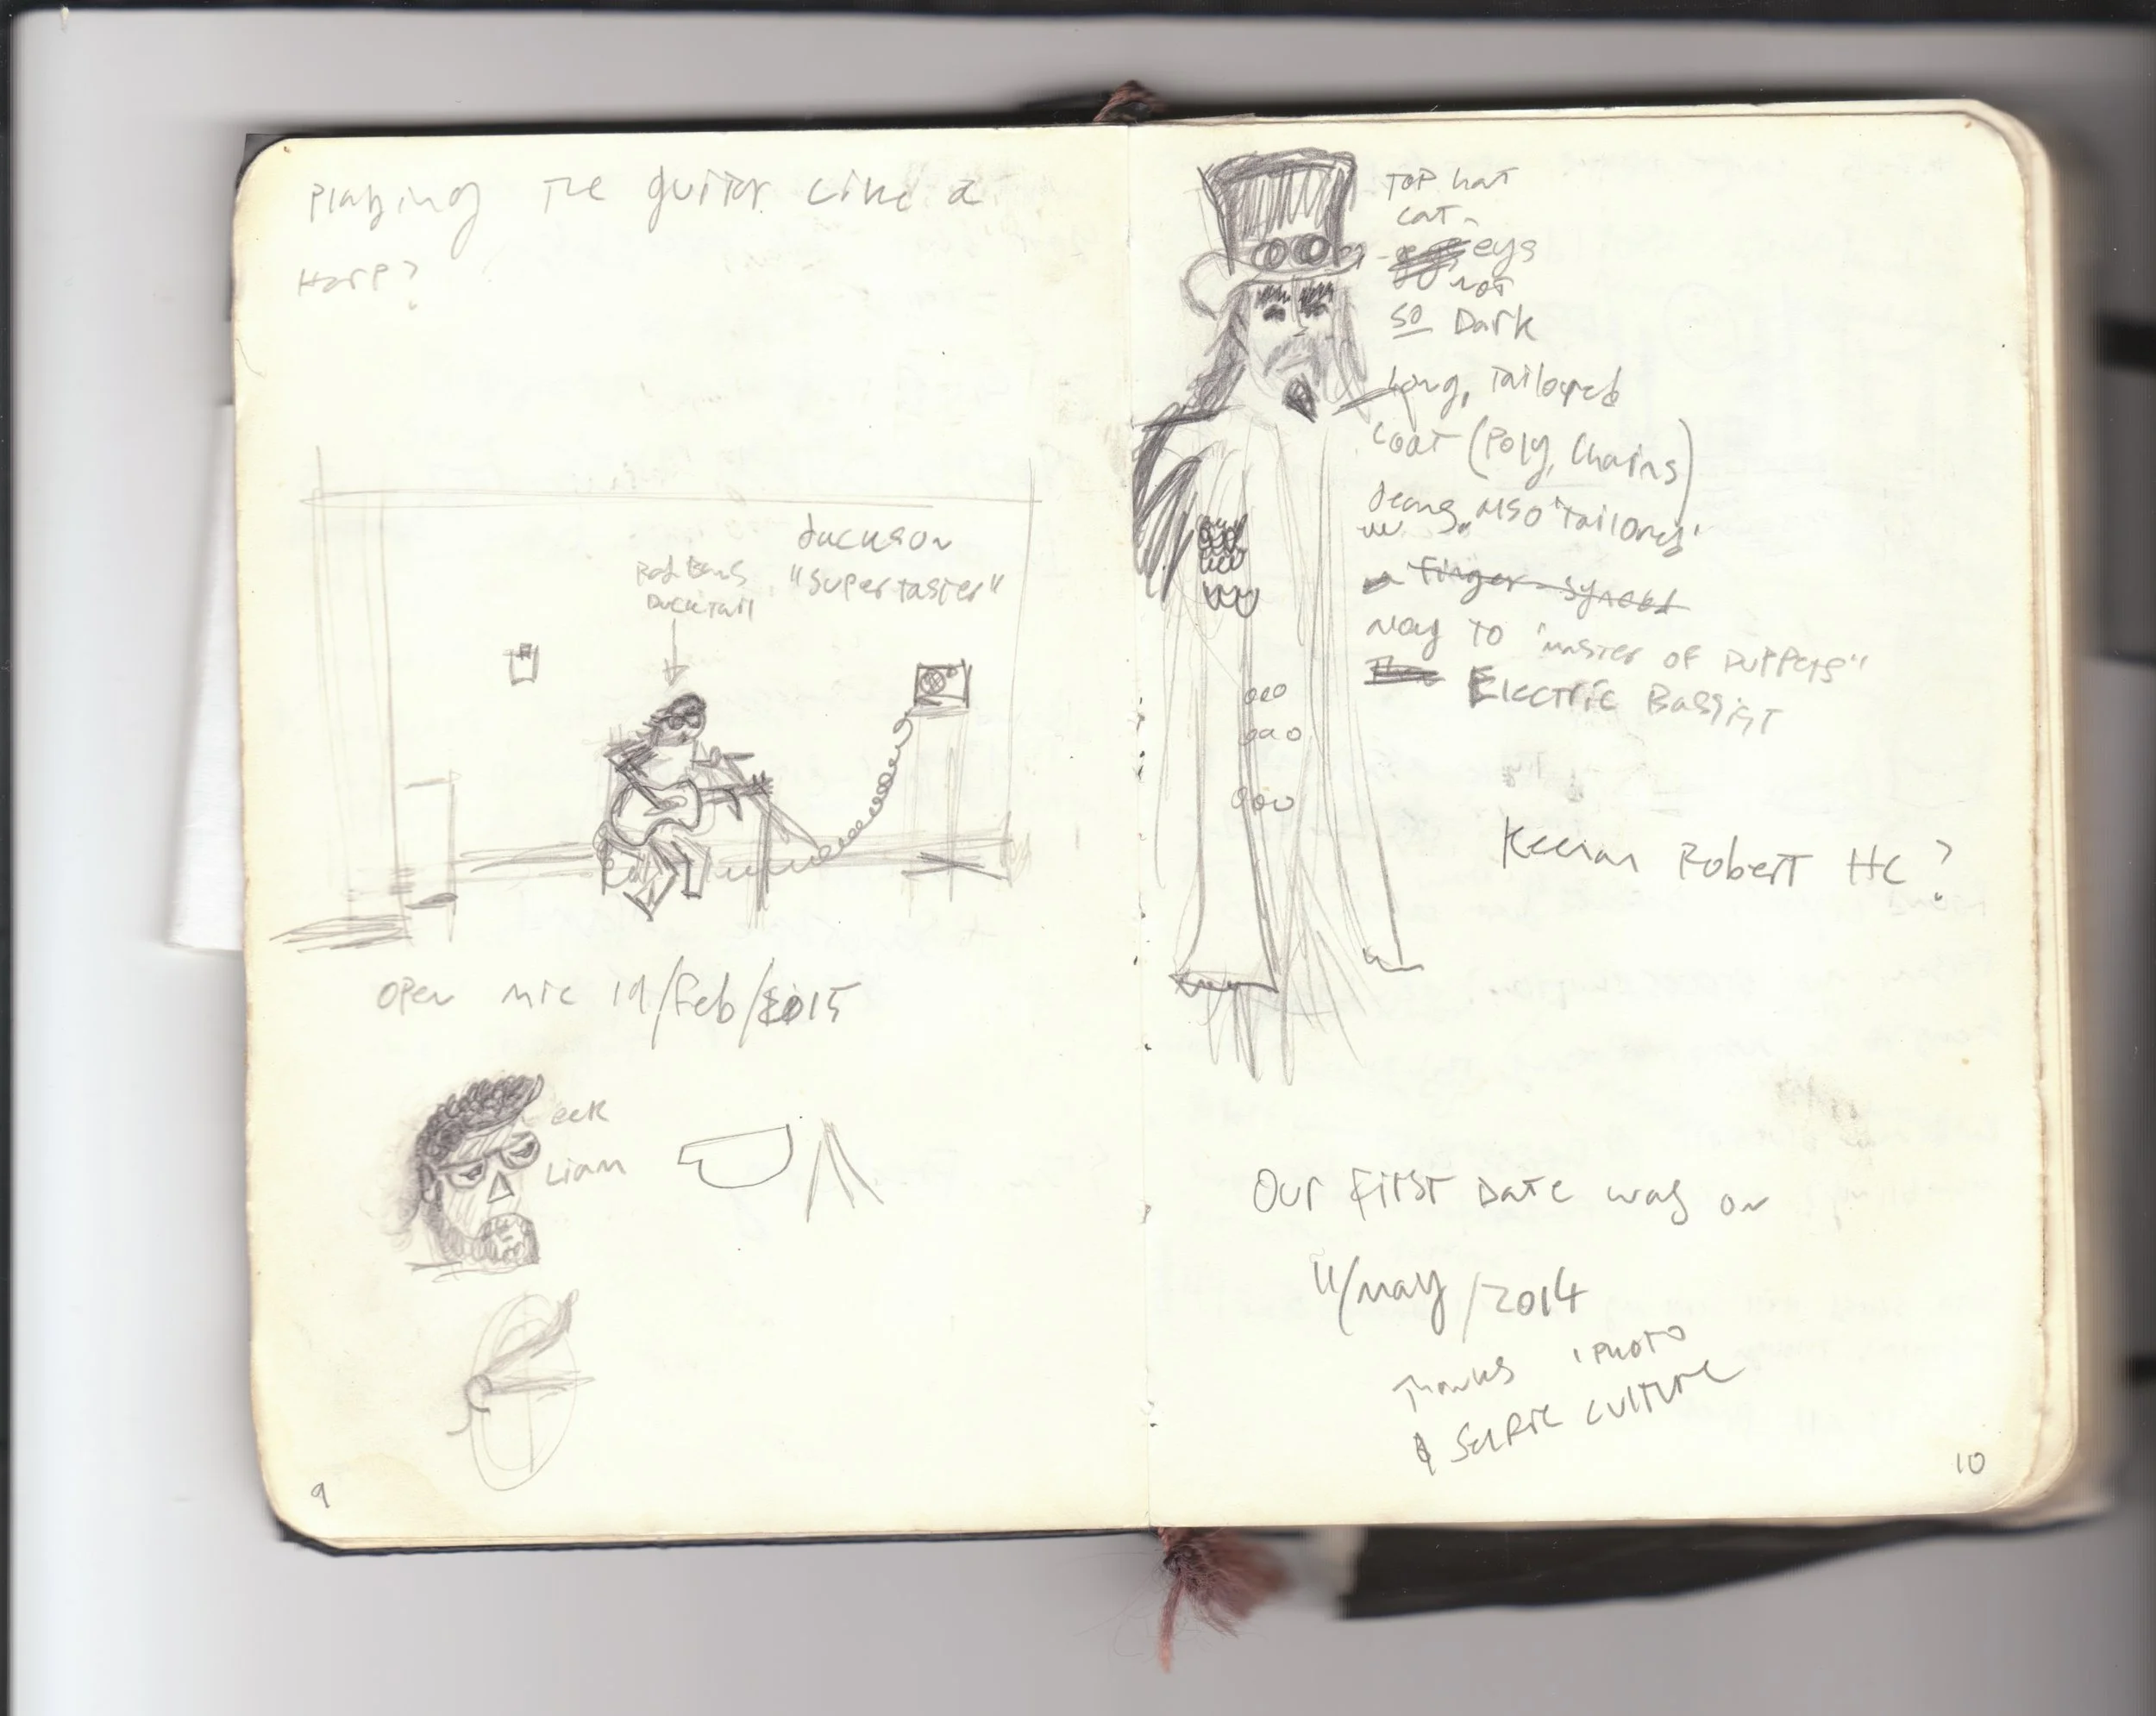 Playing the guitar like a
Harp?
Jackson
"Supertaster"
Ducktail
open mic 19/Feb/2015
eek
Liam
9
TOP hat
cat
eyes
not
so Dark
Long, Tailored
coat (Poly, Chains)
Jeans, also 'Tailored'
finger-synced
to "master of puppets"
Electric Bassist
Robert Hc?
Our first Date was on
11/may/2014
Thanks iPhoto
& Selfie culture
10